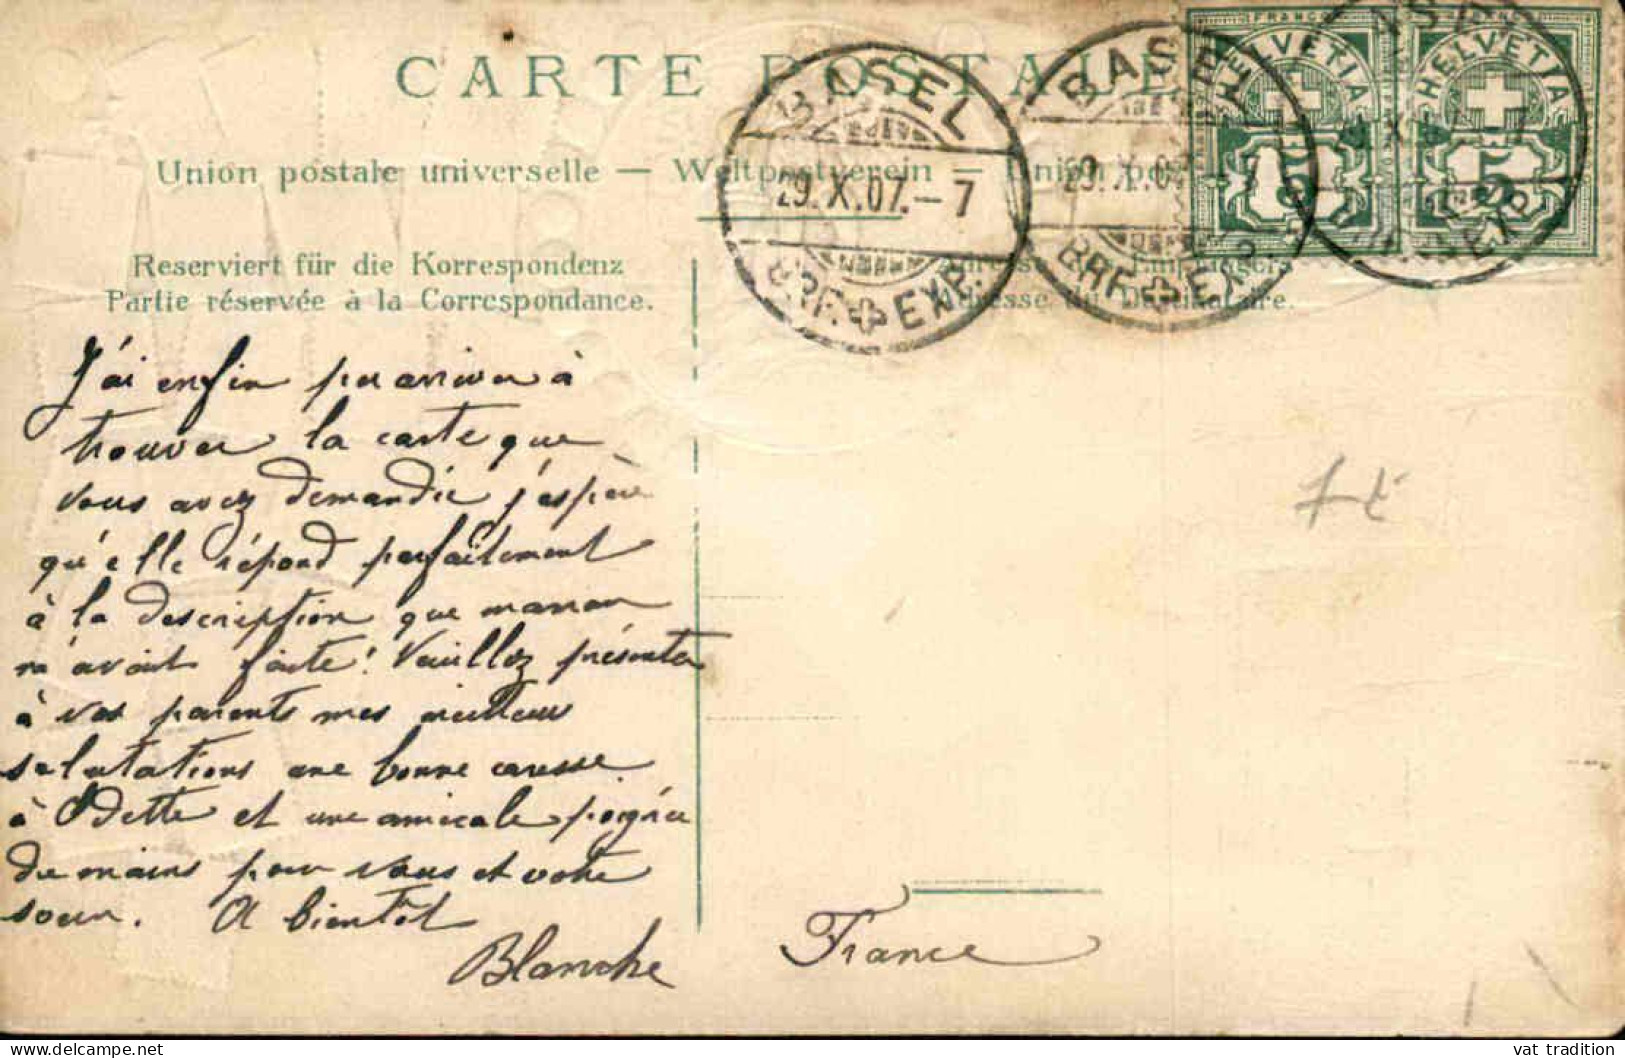 CARTE POSTALE
Union postale universelle — Weltpostverein — Union
Reserviert für die Korrespondenz
Partie réservée à la Correspondance.
BASEL
29.X.07.–7
BRF. EXP.
BASEL
29.X.07 – 7
BRF. EXP.
FRANCO
HELVETIA
5
HELVETIA
5
J'ai enfin pu arriver à
trouver la carte que
vous avez demandée j'espère
qu'elle répond parfaitement
à la description que maman
m'avait faite! Veuillez présenter
à vos parents mes meilleures
salutations une bonne caresse
à Odette et une amicale poignée
de mains pour vous et votre
soeur. A bientôt
Blanche
France
vat tradition